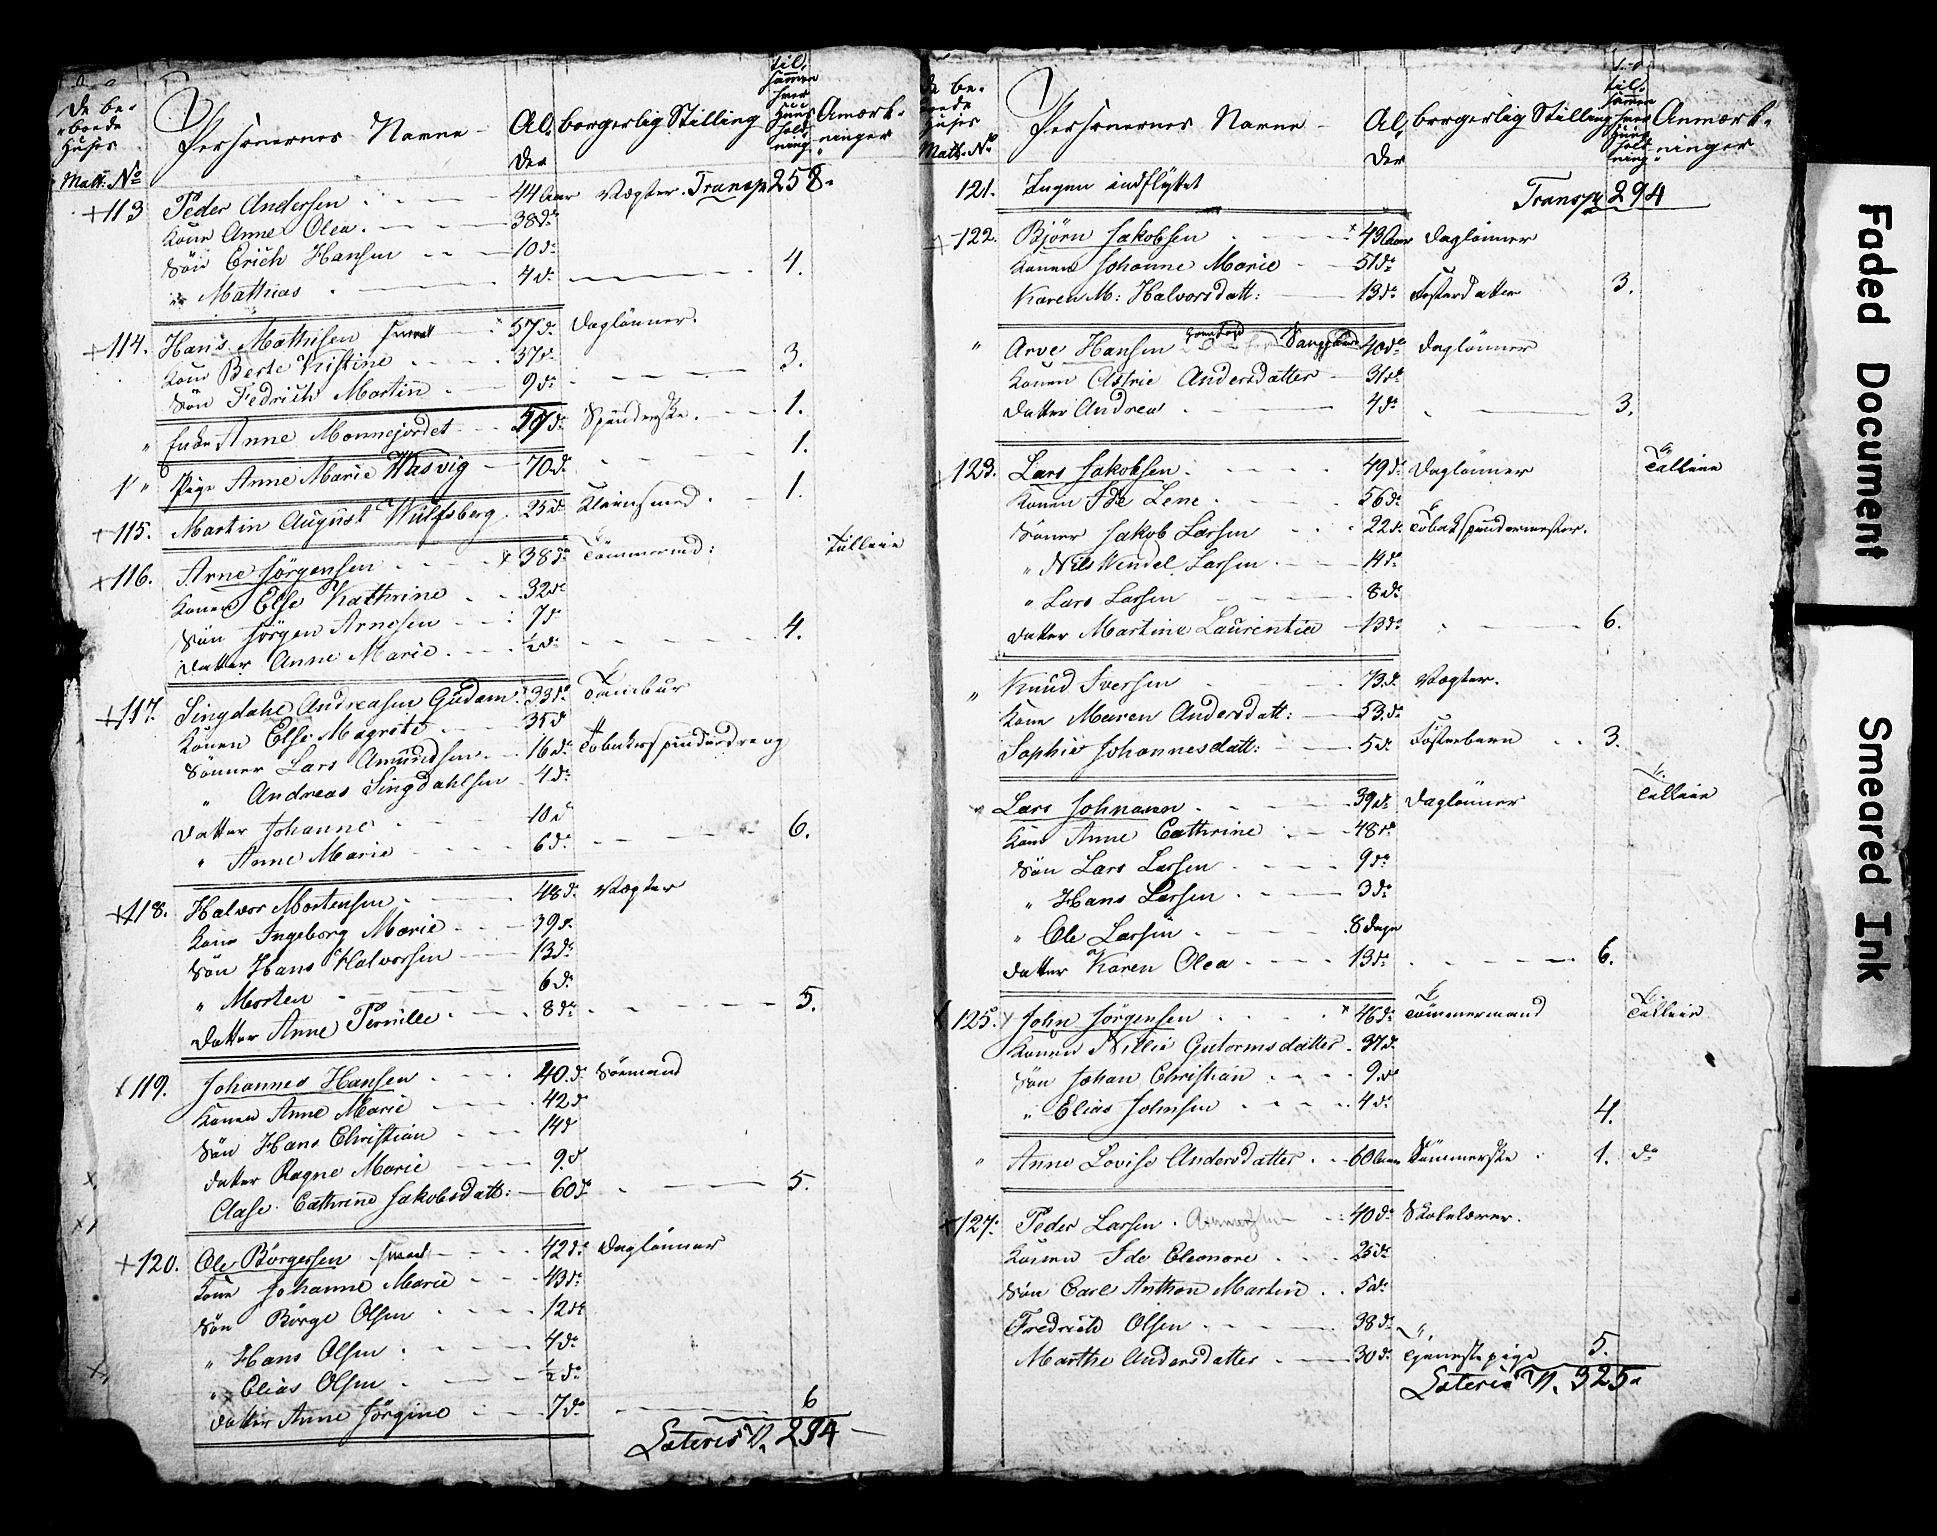 De be-
boede
Huses
Matt. No
Personernes Navne
Al-
der
borgerlig Stilling
til-
sammen
hver
Huus
hold
ning
Anmærk-
ninger
+113 Peder Andersen 44 Aar Vægter. Transp. 258.
Kone Anne Olea. 38 do
Søn Erich Hansen 10 do
" Mathias 4 do 4.
+114. Hans Mathisen smed 57 do Daglønner.
Kone Berte Kristine 37 do
Søn Fedrich Martin 9 do 3.
" Enke Anne Monnejordet 57 do Spinderske. 1.
" Pige Anne Marie Wasvig 70 do 1.
+115. Martin August Wulfsberg. 25 do Kleinsmed. 1.
+116. Arne Jörgensen 38 do Tömmermd: Tilleie
Konen Else Kathrine 32 do
Søn Jörgen Arnesen 7 do
Datter Anne Marie ½ do 4.
+117. Singdahl Andreasen Gudam 33 do Tambur
Konen Else Magrete 35 do
Sønner Lars Amundsen 16 do Tobaksspinderdreng
" Andreas Singdahlsen 4 do
Datter Johanne 10 do
" Anne Marie 6 do 6.
+118. Halvor Mortensen 48 do Vægter
Kone Ingeborg Marie 39 do
Søn Hans Halvorsen 13 do
" Morten 6 do
Datter Anne Pernille 8 do 5.
+119. Johannes Hansen 40 do Sömand
Konen Anne Marie 42 do
Søn Hans Christian 14 do
Datter Ragne Marie 9 do
Clase Cathrine Jakobsdatt: 60 do 5.
+120. Ole Börgersen smed 42 do Daglønner
Kone Johanne Marie 43 do
Søn Börge Olsen 12 do
" Hans Olsen 4 do
" Elias Olsen ½ do
Datter Anne Jörgine 7 do 6
Lateris 294
De be-
boede
Huses
Matt. No
Personernes Navne
Al-
der
borgerlig Stilling
til-
sammen
hver
Huus
hold
ning
Anmærk-
ninger
121. Ingen indflyttet Transp. 294
122. Björn Jakobsen 43 Aar Daglønner
Konen Johanne Marie 51 do
Karen M: Halvorsdatt: 13 do Fosterdatter 3.
" Arve Hansen 40 do Daglønner
Konen Astrie Andersdatter 31 do
Datter Andrea 4 do 3.
123. Lars Jakobsen. 49 do Daglønner Tilleie
Konen Ide Lene 56 do
Sønner Jakob Larsen 22 do Tobakspindermester.
" Nils Wendel Larsen 14 do
" Lars Larsen 8 do
Datter Martine Laurentia 13 do 6.
" Knud Iversen 73 do Vægter.
Kone Maren Andersdatt: 53 do
Sophie Johannesdatt: 5 do Fosterbarn 3.
" Lars Johnsen 39 do Daglønner Tilleie
Kone Anne Cathrine 48 do
Søn Lars Larsen 9 do
" Hans Larsen 3 do
" Ole Larsen 8 dage
Datter Karen Olea 13 do 6.
125. John Jörgensen 46 do Tömmermand Tilleie
Konen Nillie Gutormsdatter 37 do
Søn Johan Christian 9 do
" Elias Johnsen 4 do 4.
" Anne Lovise Andersdatter 60 Aar Sömmerske 1. do
+127. Peder Larsen 40 do Skolelærer.
Konen Ide Eleonore 25 do
Søn Carl Anthon Martin 5 do
Fredrich Olsen 38 do "
Marthe Andersdatter 30 do Tjenestepige 5.
Lateris 325
Faded Document
Smeared Ink